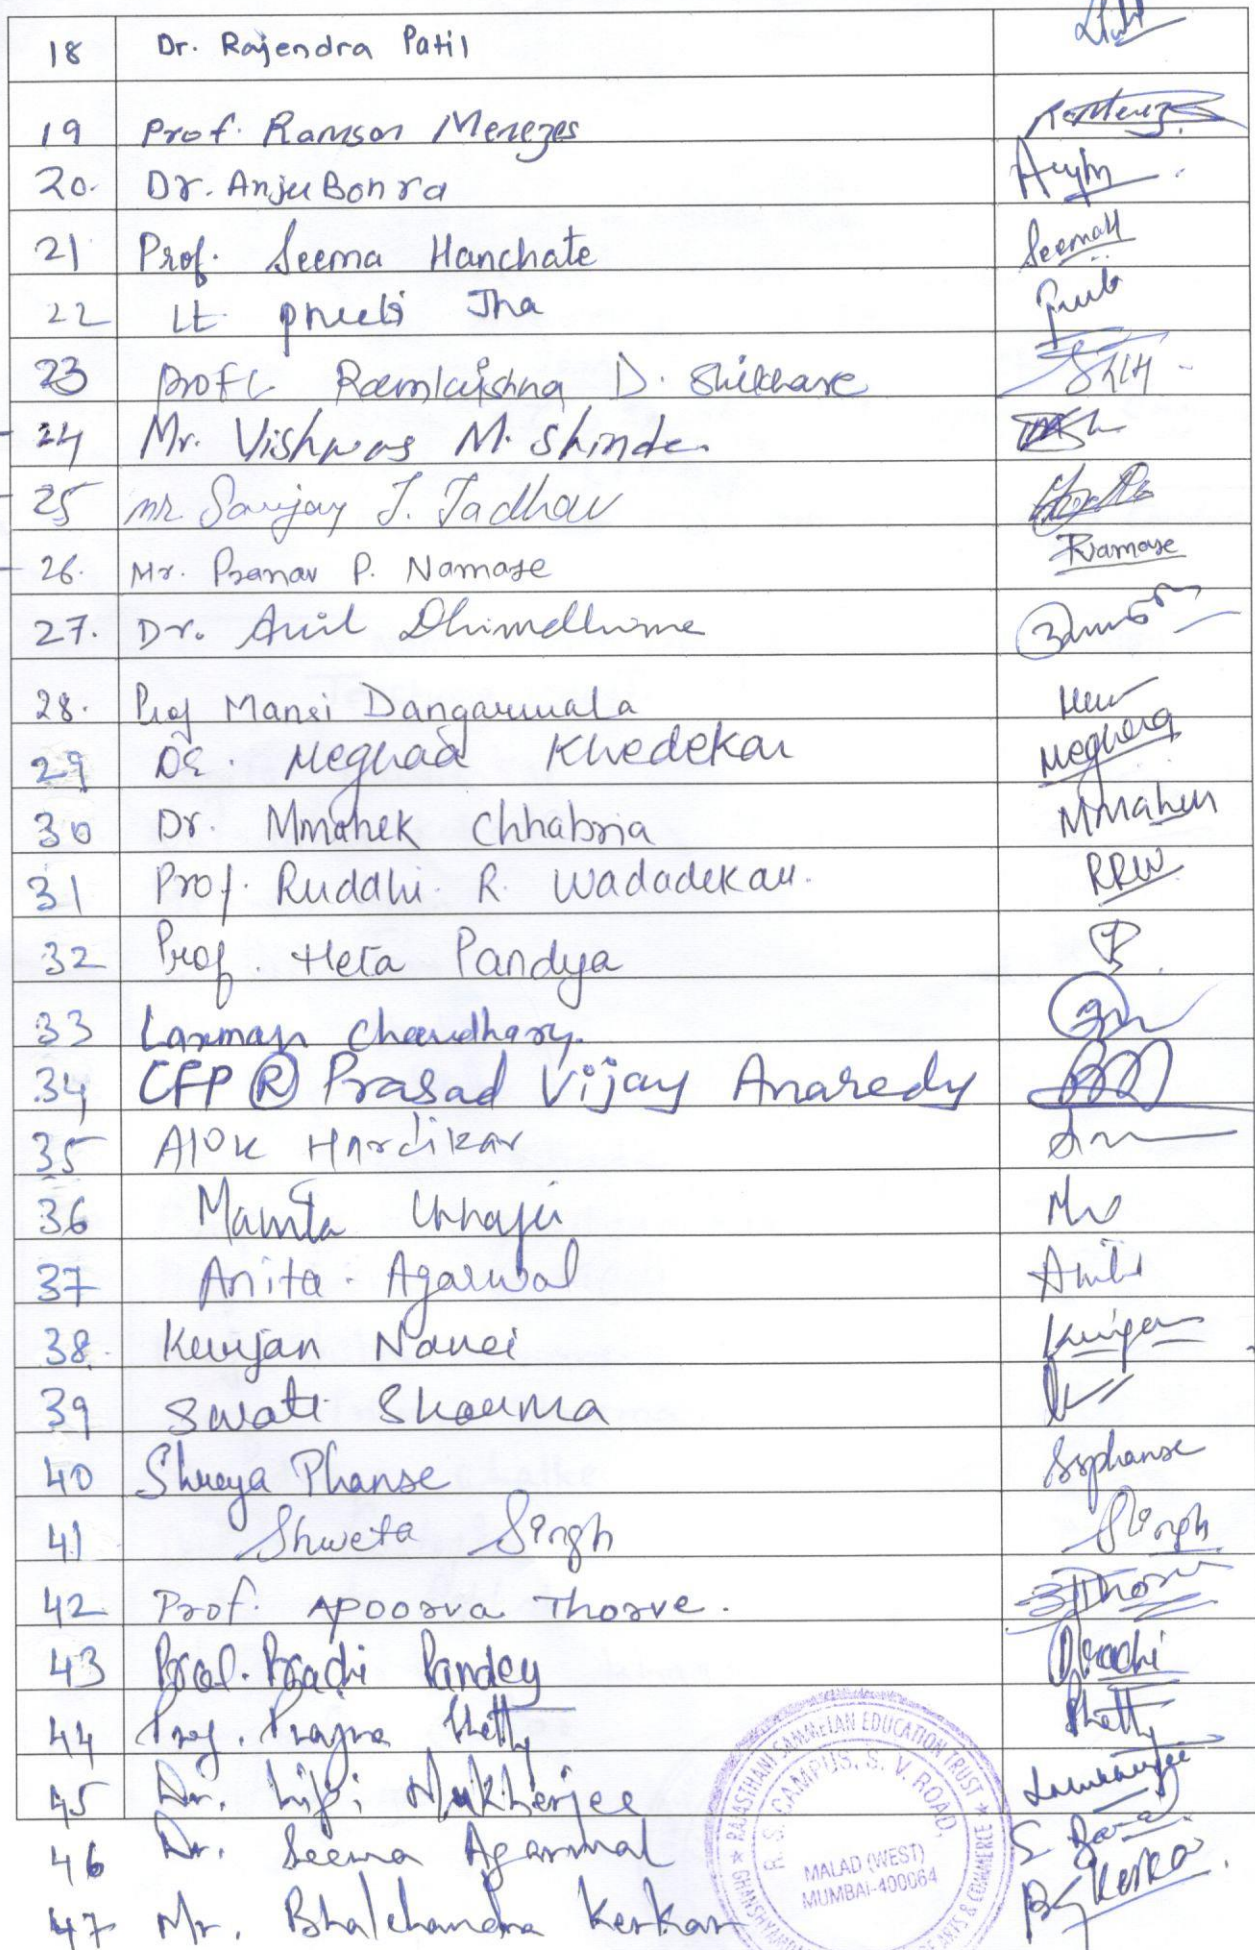 18 Dr. Rajendra Patil
19 Prof. Ramson Menezes
20. Dr. Anju Bonra
21 Prof. Seema Hanchate SeemaH
22 Lt. Preeti Jha
23 Prof Ramkrishna D. Shikhare
24 Mr. Vishwas M. Shinde.
25 mr. Sanjay J. Jadhav
26. Mr. Pranav P. Namase PNamase
27. Dr. Anil Dhimdhime
28. Prof Mansi Dangarwala
29 Dr. Meghaa Khedekar
30 Dr. Mmahek Chhabria
31 Prof. Ruddhi. R. Wadadekar. RRW
32 Prof. Heta Pandya
33 Laxman Chaudhary.
34 CFP ® Prasad Vijay Anaredy
35 Alok Hardikar
36 Mamta Chhajer
37 Anita. Agarwal
38. Kunjan
39 Swati Sharma
40 Shreya Phanse SSphanse
41 Shweta Singh SSingh
42 Prof. Apoorva Thorve.
43 Prof. Prachi Pandey Prachi
44 Prof. Prajna Shetty PShetty
45 Dr. Lipi Mukherjee
46 Dr. Seema Agarwal
47 Mr. Bhalchandra Kerkar BGKerkar.
★ RAJASTHANI SAMMELAN EDUCATION TRUST ★
R. S. CAMPUS, S. V. ROAD,
MALAD (WEST)
MUMBAI-400064
ARTS & COMMERCE